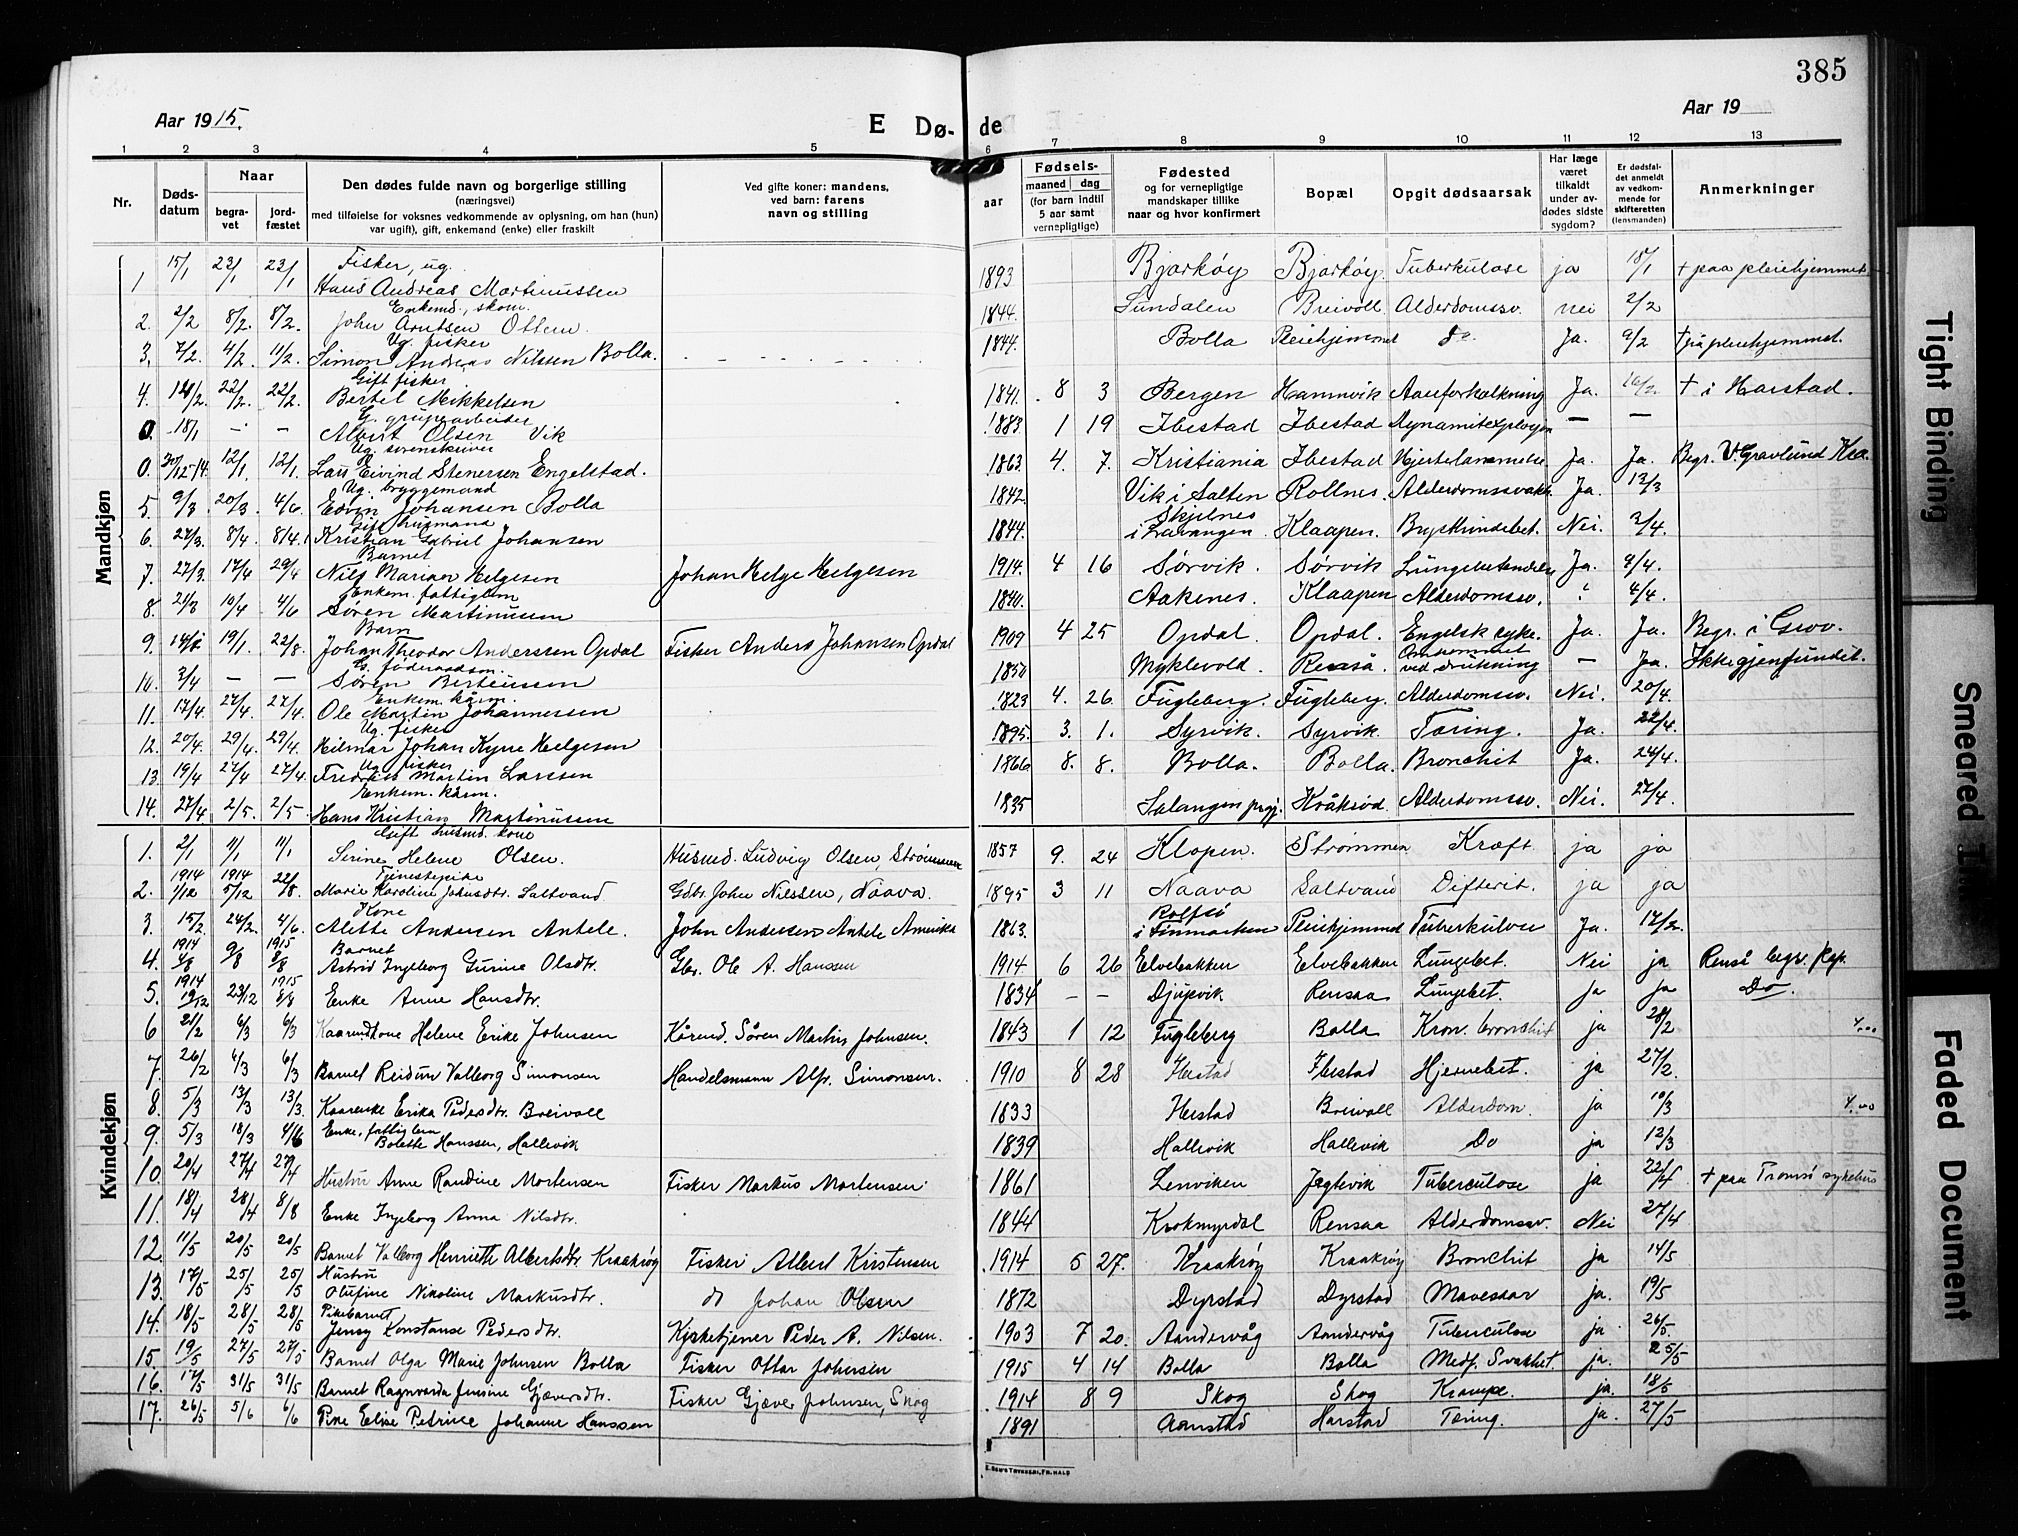 385
Aar 1915.
E Dø-
de
Aar 19
1 2 3 4 5 6 7 8 9 10 11 12 13
Nr.
Døds-
datum
Naar
begra-
vet
jord-
fæstet
Den dødes fulde navn og borgerlige stilling
(næringsvei)
med tilføielse for voksnes vedkommende av oplysning, om han (hun)
var ugift), gift, enkemand (enke) eller fraskilt
Ved gifte koner: mandens,
ved barn: farens
navn og stilling
aar
Fødsels-
maaned dag
(for barn indtil
5 aar samt
vernepligtige)
Fødested
og for vernepligtige
mandskaper tillike
naar og hvor konfirmert
Bopæl
Opgit dødsaarsak
Har læge
været
tilkaldt
under av-
dødes sidste
sygdom?
Er dødsfal-
det anmeldt
av vedkom-
mende for
skifteretten
(lensmanden)
Anmerkninger
Mandkjøn
Fisker, ug.
1 15/1 23/1 23/1 Hans Andreas Martinussen 1893 Bjarkøy Bjarkøy Tuberkulose ja 18/1 + paa pleiehjemmet
Enkemd., skom.
2. 2/2 8/2. 8/2. John Arntsen Ottem. 1844. Sundalen Breivoll Alderdomssv. nei 2/2
Ug. fisker
3. 7/2. 4/2. 11/2. Simon Andreas Nilsen Bolla. 1844. Bolla Pleiehjemmet do. Ja. 9/2 + på pleiehjemmet.
Gift fisker
4. 22/2. 22/2. Bertel Mikkelsen 1841. 8 3 Bergen Hamnvik Aareforkalkning Ja. 16/2. + i Harstad.
G. grubearbeider
0. 18/1 – – Albert Olsen Vik 1883. 1 19 Ibestad Ibestad Dynamitexplosjon — —
Ug. sorenskriver
0. 30/12-14. 12/1. 12/1. Lars Eivind Stenersen Engelstad. 1863. 4. 7. Kristiania Ibestad Hjertelammelse Ja. Ja. Begr. V. Gravlund Kra.
Ug. bryggemand
5. 9/3 20/3. 4/6 Edvin Johansen Bolla 1842. Vik i Salten Rollnes. Alderdomssvakh. Ja. 13/3
Gift husmand Skjelnes
6. 27/3. 8/4. 8/4. Kristian Gabriel Johansen 1844. i Gravangen. Klaapen. Brysthindebet. Nei. 3/4.
Barnet
7. 27/3. 17/4 29/4 Nils Marian Helgesen Johan Helge Helgesen 1914. 4 16 Sørvik. Sørvik Lungebetændelse Ja. 4/4.
Enkem. fattiglem
8. 21/3 10/4 4/6 Søren Martinussen 1840. Aakenes. Klaapen Alderdomssv. ? 4/4.
Barn
9. 14/1 19/1. 22/8. Johan Theodor Anderssen Opdal Fisker Anders Johansen Opdal 1909 4 25 Opdal. Opdal. Engelsk syke. Ja. Ja. Begr. i Grov.
G. føderaadsm. Omkommet
10. 3/4 — — Søren Berteussen 1850 Myklevold. Renså. ved drukning — Ja. Ikke gjenfundet.
Enkem. kårm.
11. 17/4. 27/4. 27/4. Ole Martin Johannessen 1823 4. 26. Fugleberg. Fugleberg. Alderdomssv. Nei. 20/4.
Ug. fisker
12. 20/4. 29/4. 29/4. Hilmar Johan Kyrre Helgesen 1895. 3. 1. Syrvik. Syrvik. Tæring. Ja. 22/4.
Ug. fisker
13 19/4 27/4 27/4. Fredrik Martin Larssen 1866 8. 8. Bolla. Bolla. Bronchit Ja. 24/4.
Enkem. kårm.
14. 27/4 2/5. 2/5. Hans Kristian Martinussen 1835 Salangen prgj. Kråkrød Alderdomssv. Nei. 27/4.
Kvindekjøn
Gift husmd. kone
1. 2/1 11/1 11/1 Serine Helene Olsen. Husmd. Ludvig Olsen, Strømmen 1857 9. 24 Klapen. Strømmen Kræft ja ja
1914 1914 Tjenestepike
2. 1/12 5/12 22/8 Marie Karoline Johnsdtr. Saltvand. Gdbr. John Nilssen, Naava. 1895 3 11 Naava Saltvand Difterit. ja ja
Kone Rolfsø
3. 15/2. 24/2. 4/6. Alette Andersen Antele. John Andersen Antele Amerika 1863. i Finmarken Pleiehjemmet Tuberkulose Ja. 17/2.
1914 1915 Barnet
4. 4/8 9/8 8/8 Astrid Ingeborg Gurine Olsdtr. Gbr. Ole A. Hanssen 1914 6 26 Elvebakken Elvebakken Lungebet. Nei ja Renså begr. kap.
1914 1915
5. 19/12 23/12 8/8 Enke Anne Hansdtr. 1834 – – Djupvik Rensaa Lungebet. ja ja Do.
6 21/2 6/3 6/3 Kaarmdkone Helene Erike Johnsen Kårmd. Sören Martin Johnsen. 1843 1 12 Fugleberg Bolla Kron. bronchit ja 28/2 4,00
7. 26/2 4/3 6/3 Barnet Reidun Valborg Simonsen Handelsmann Alfr. Simonsen. 1910 8 28 Ibestad Ibestad Hjernebet. ja 27/2.
8. 5/3 13/3 13/3. Kaarenke Erika Pedersdtr. Breivoll 1833 Ibestad Breivoll Alderdom. ja 10/3 4,00
Enke, fattiglem
9. 5/3 18/3 4/6 Bolette Hanssen, Hallevik 1839 Hallevik Hallevik Do ja 12/3
10. 20/4 27/4 27/4 Hustru Anne Randine Mortensen Fisker Markus Mortensen. 1861 Lenviken Jegtevik Tuberculose ja 22/4 + paa Tromsø sykehus
11. 18/4 28/4 8/8 Enke Ingeborg Anna Nilsdtr. 1844 Krokmyrdal Rensaa Alderdomssv. Nei 27/4
12. 11/5 20/5 20/5 Barnet Valborg Henriette Albertsdtr Kraakrøy Fisker Albert Kristensen 1914 5 27. Kraakrøy Kraakrøy Bronchit ja 14/5
Hustru
13. 17/5 25/5 25/5 Olufine Nikoline Markusdtr. do Johan Olsen 1872 Dyrstad Dyrstad Mavesaar ja. 19/5
Pikebarnet
14. 18/5 28/5 28/5 Jensy Konstanse Pedersdtr. Kirketjener Peder A. Nilsen. 1903 7 20. Aandervåg Aandervåg Tuberculose ja 26/5.
15. 19/5 27/5 27/5 Barnet Olga Marie Johnsen Bolla Fisker Ottar Johnsen 1915 4 14 Bolla Bolla Medf. Svakhet. ja. 25/5
16. 17/5 31/5 31/5 Barnet Ragnvarda Jensine Gjæversdtr. Fisker Gjæver Johnsen, Skog 1914 8 9 Skog Skog Krampe. ja. 18/5
17. 26/5 5/6 6/6 Pike Elise Petrine Johanne Hanssen 1891 Aanstad Harstad Tæring. ja. 27/5
E. SEM'S TRYKKERI, FR.HALD
Tight Binding
Smeared
Faded Document